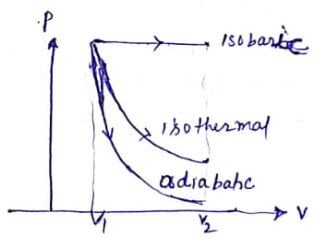 P
isobaric
isothermal
adiabatic
V₁
V₂
V